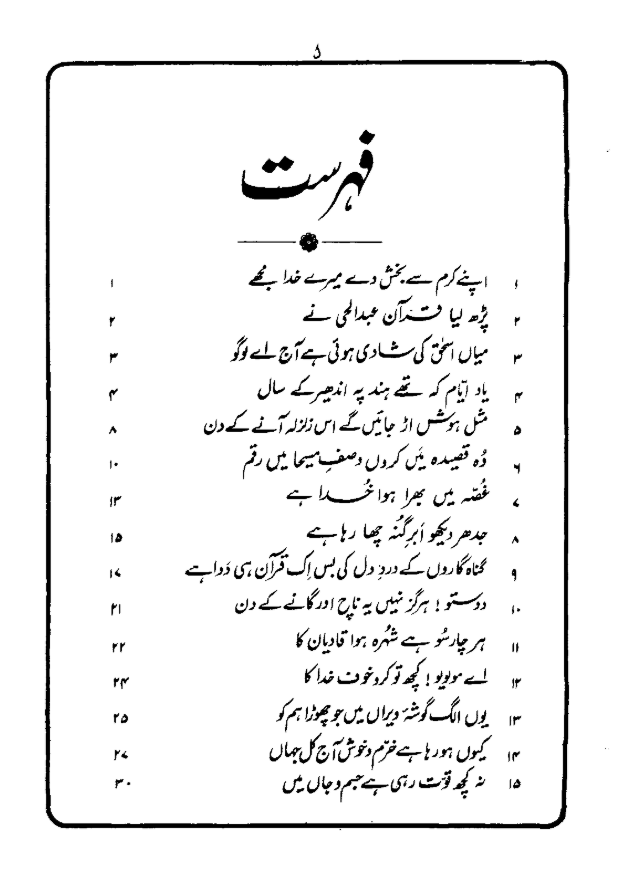 ۵
فہرست
۱ اپنے کرم سے بخش دے میرے خدا مجھے ۱
۲ پڑھ لیا قرآن عبدالحی نے ۲
۳ میاں اسحٰق کی شادی ہوئی ہے آج اے لوگو ۳
۴ یاد ایّام کہ تھے ہند پہ اندھیر کے سال ۴
۵ مثل ہوش اڑ جائیں گے اس زلزلہ آنے کے دن ۸
۶ وُہ قصیدہ میں کروں وصفِ مسیحا میں رقم ۱۰
۷ غُصّہ میں بھرا ہوا خُدا ہے ۱۳
۸ جدھر دیکھو اَبرِ گُنہ چھا رہا ہے ۱۵
۹ گناہ گاروں کے دردِ دل کی بس اِک قرآن ہی دَوا ہے ۱۷
۱۰ دوستو ! ہرگز نہیں یہ ناچ اور گانے کے دن ۲۱
۱۱ ہر چار سُو ہے شُہرہ ہوا قادیان کا ۲۲
۱۲ اے مولویو ! کچھ تو کرو خوف خدا کا ۲۴
۱۳ یوں الگ گوشۂ ویراں میں جو چھوڑا ہم کو ۲۵
۱۴ کیوں ہو رہا ہے خرّم و خوش آج کل جہاں ۲۷
۱۵ نہ کچھ قوّت رہی ہے جسم و جاں میں ۳۰